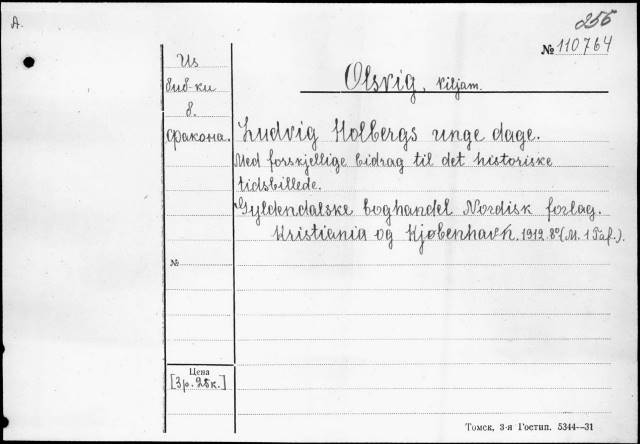 A.
256
№ 110764
Из
биб-ки
в.
Фракона.
Olsvig, Viljam.
Ludvig Holbergs unge dage.
Med forskjellige bidrag til det historiske
tidsbillede.
Gyldendalske boghandel Nordisk forlag.
Kristiania og Kjøbenhavn. 1912. 8° (M. 1 Taf.).
№
Цена
[3р. 25к.]
Томск, 3-я Гостип. 5344—31